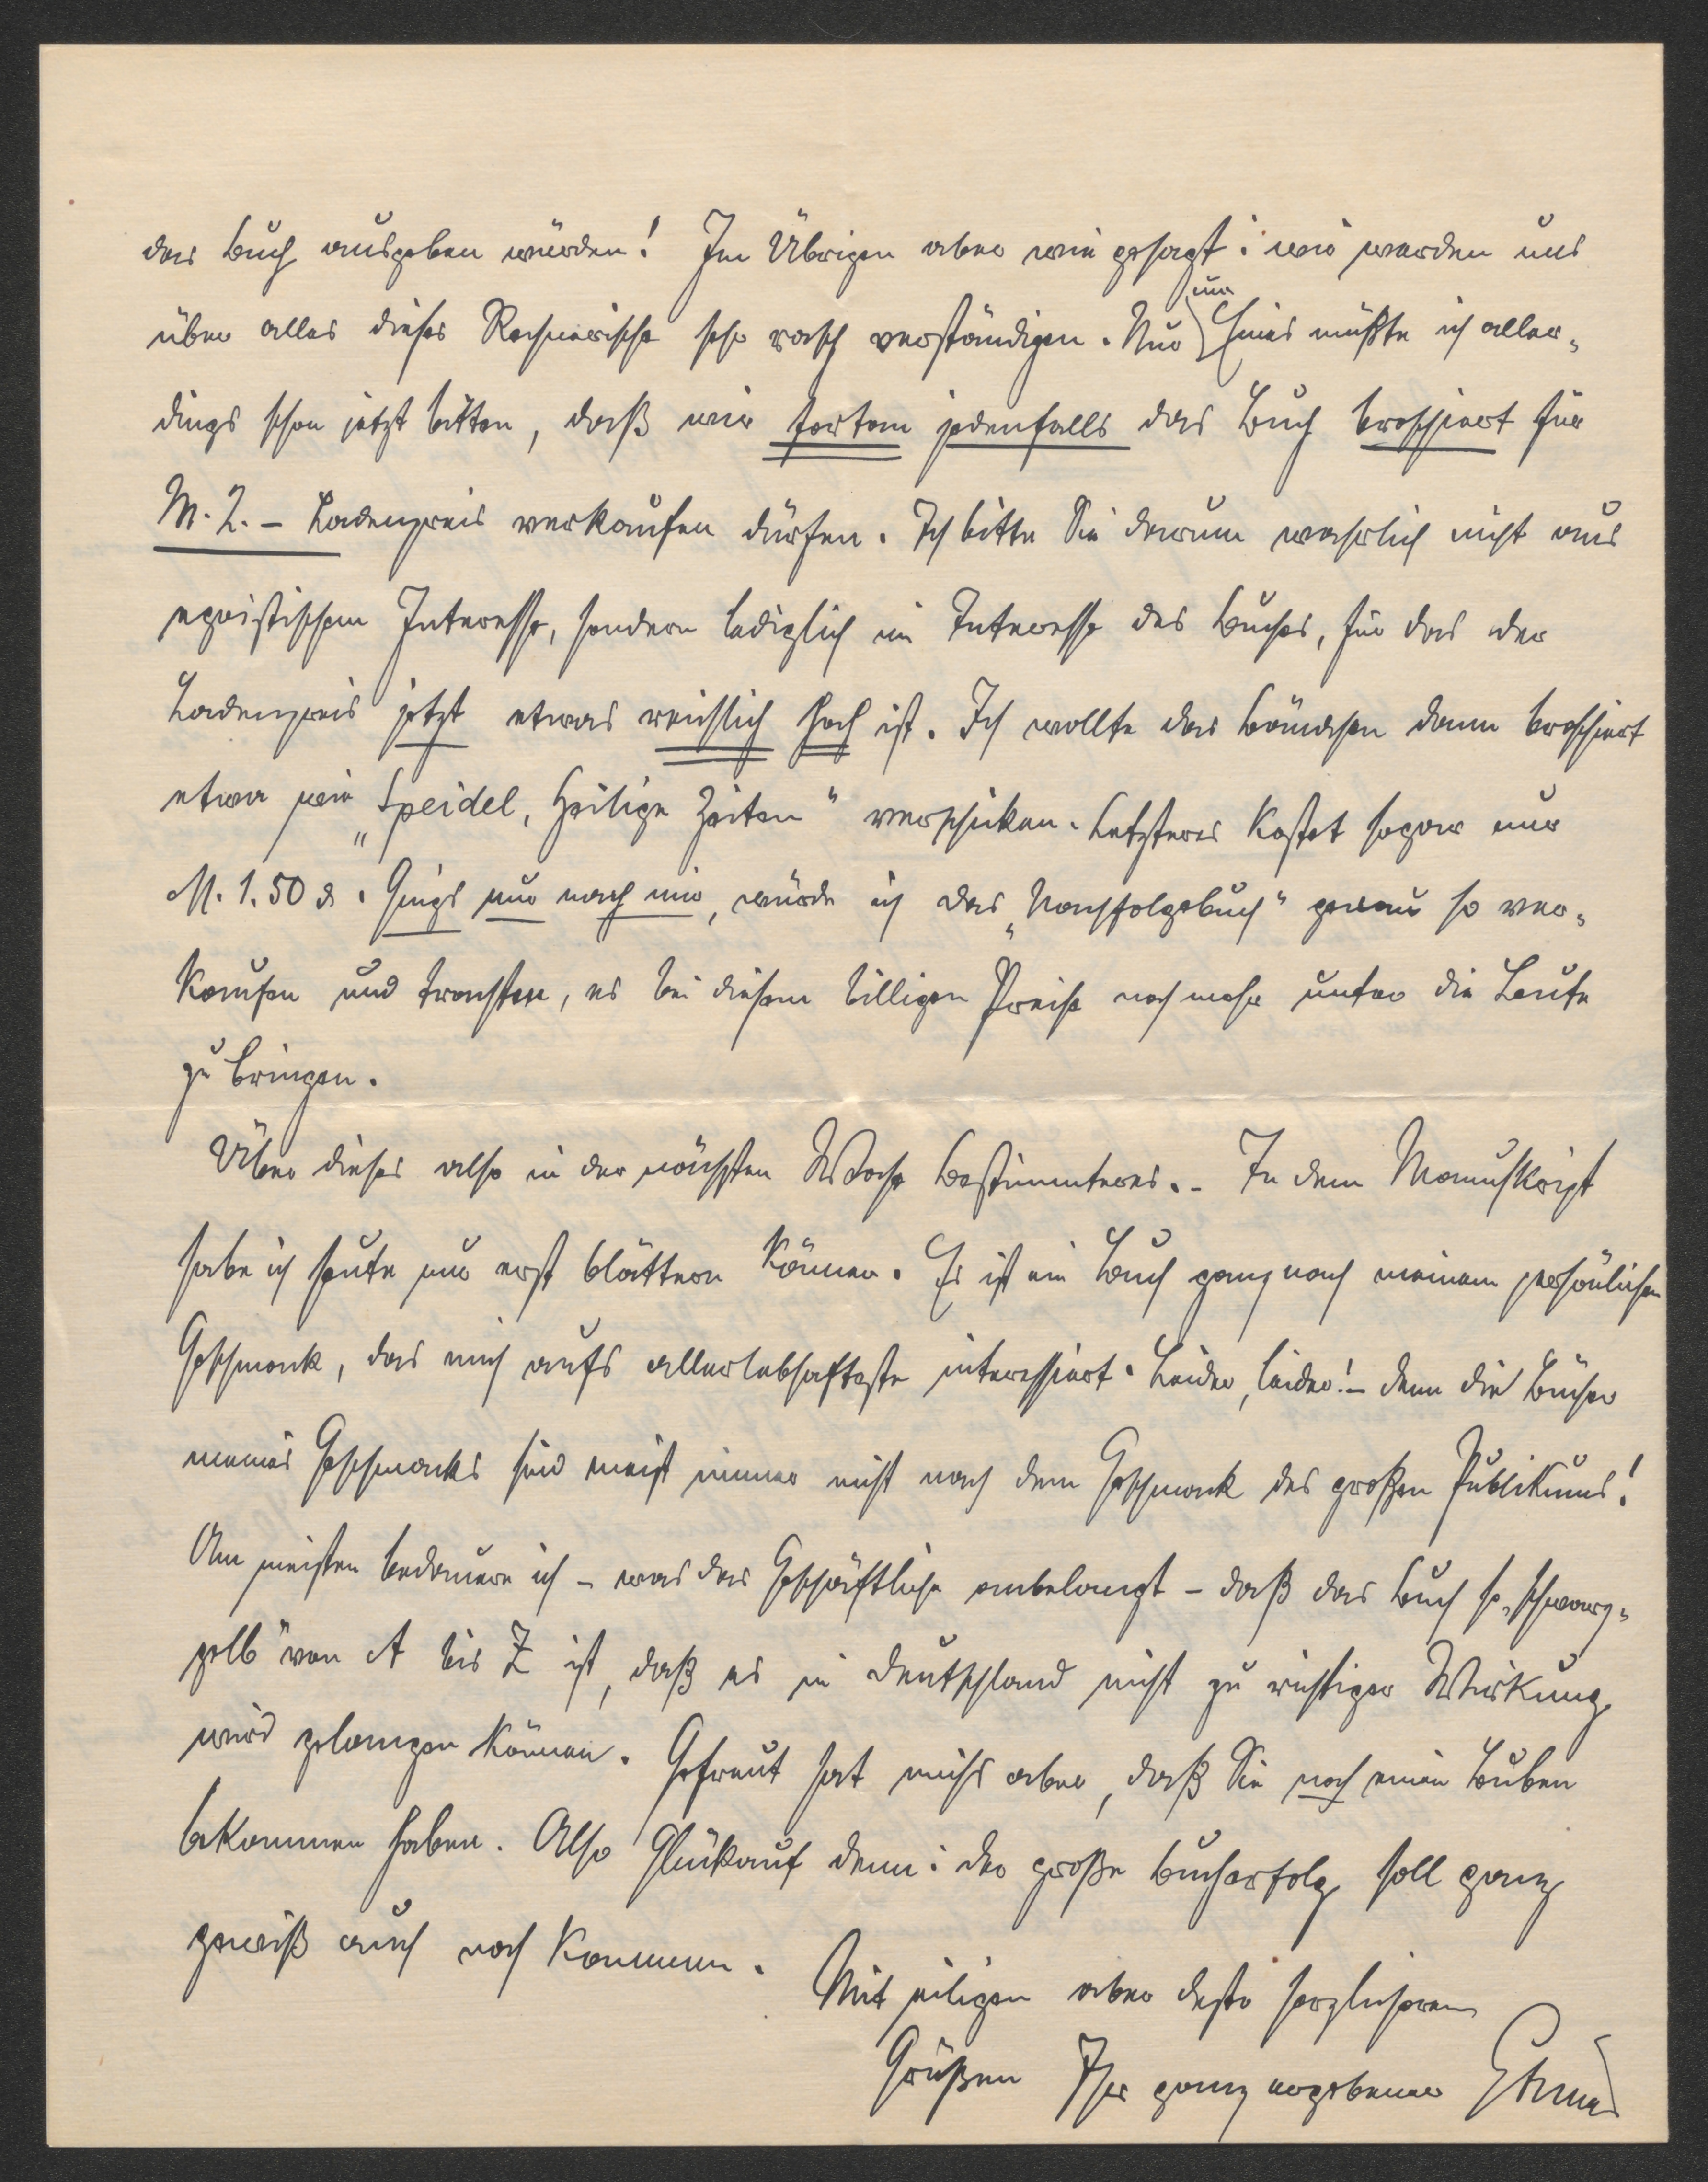 das Buch ausgeben würden! Im Übrigen aber wie gesagt: wir werden uns
über alles dieses Rechnerische sehr rasch verständigen. Nur um Eines müßte ich aller-
dings schon jetzt bitten, daß wir fortan jedenfalls das Buch broschiert für
M. 2.– Ladenpreis verkaufen dürfen. Ich bitte Sie darum wahrlich nicht aus
egoistischem Interesse, sondern lediglich im Interesse des Buches, für das der
Ladenpreis jetzt etwas reichlich hoch ist. Ich wollte das Bändchen dann broschiert
etwa wie „Speidel, Heilige Zeiten" verschicken. Letzteres kostet sogar nur
M. 1.50 d. Gings nur nach mir, würde ich das „Nachfolgebuch" genau so ver-
kaufen und trachten, es bei diesem billigen Preise noch mehr unter die Leute
zu bringen.
Über dieses also in der nächsten Woche Bestimmteres. – In dem Manuskript
habe ich heute nur erst blättern können. Es ist ein Buch ganz nach meinem persönlichen
Geschmack, das mich aufs allerlebhafteste interessiert. Leider, leider! – denn die Bücher
meines Geschmacks sind meist immer nicht nach dem Geschmack des großen Publikums!
Am meisten bedauere ich – was das Geschäftliche anbelangt – daß das Buch so „schwarz-
gelb" von A bis Z ist, daß es in Deutschland nicht zu richtiger Wirkung
wird gelangen können. Gefreut hat michs aber, daß Sie noch einen Buben
bekommen haben. Also Glückauf denn: der große Bucherfolg soll ganz
gewiß auch noch kommen.
Mit eiligen aber desto herzlicheren
Grüßen Ihr ganz ergebener